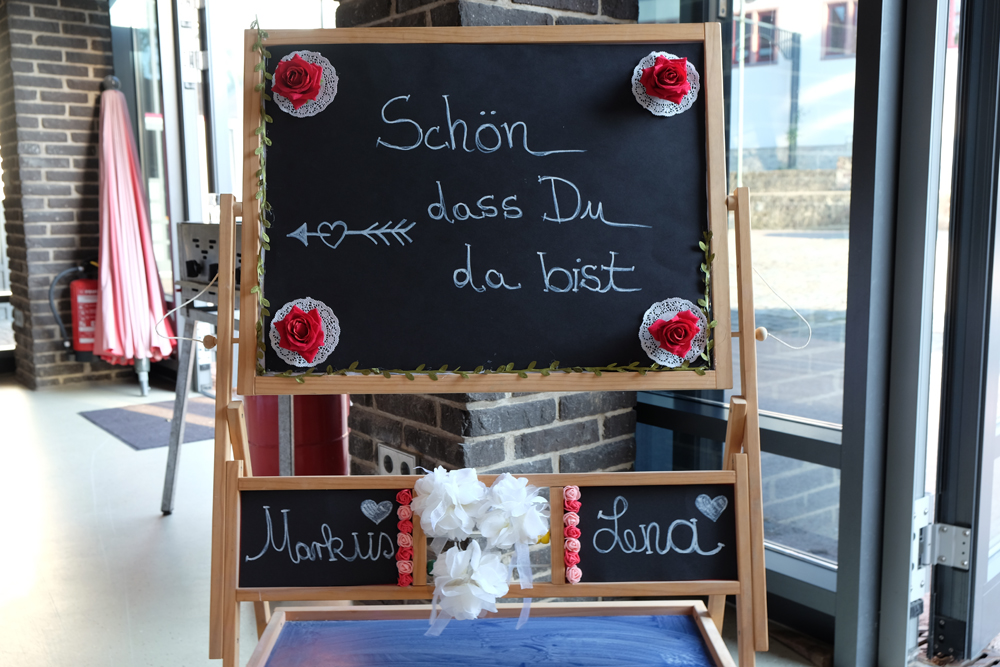 Schön
dass Du
da bist
Markus
Lena